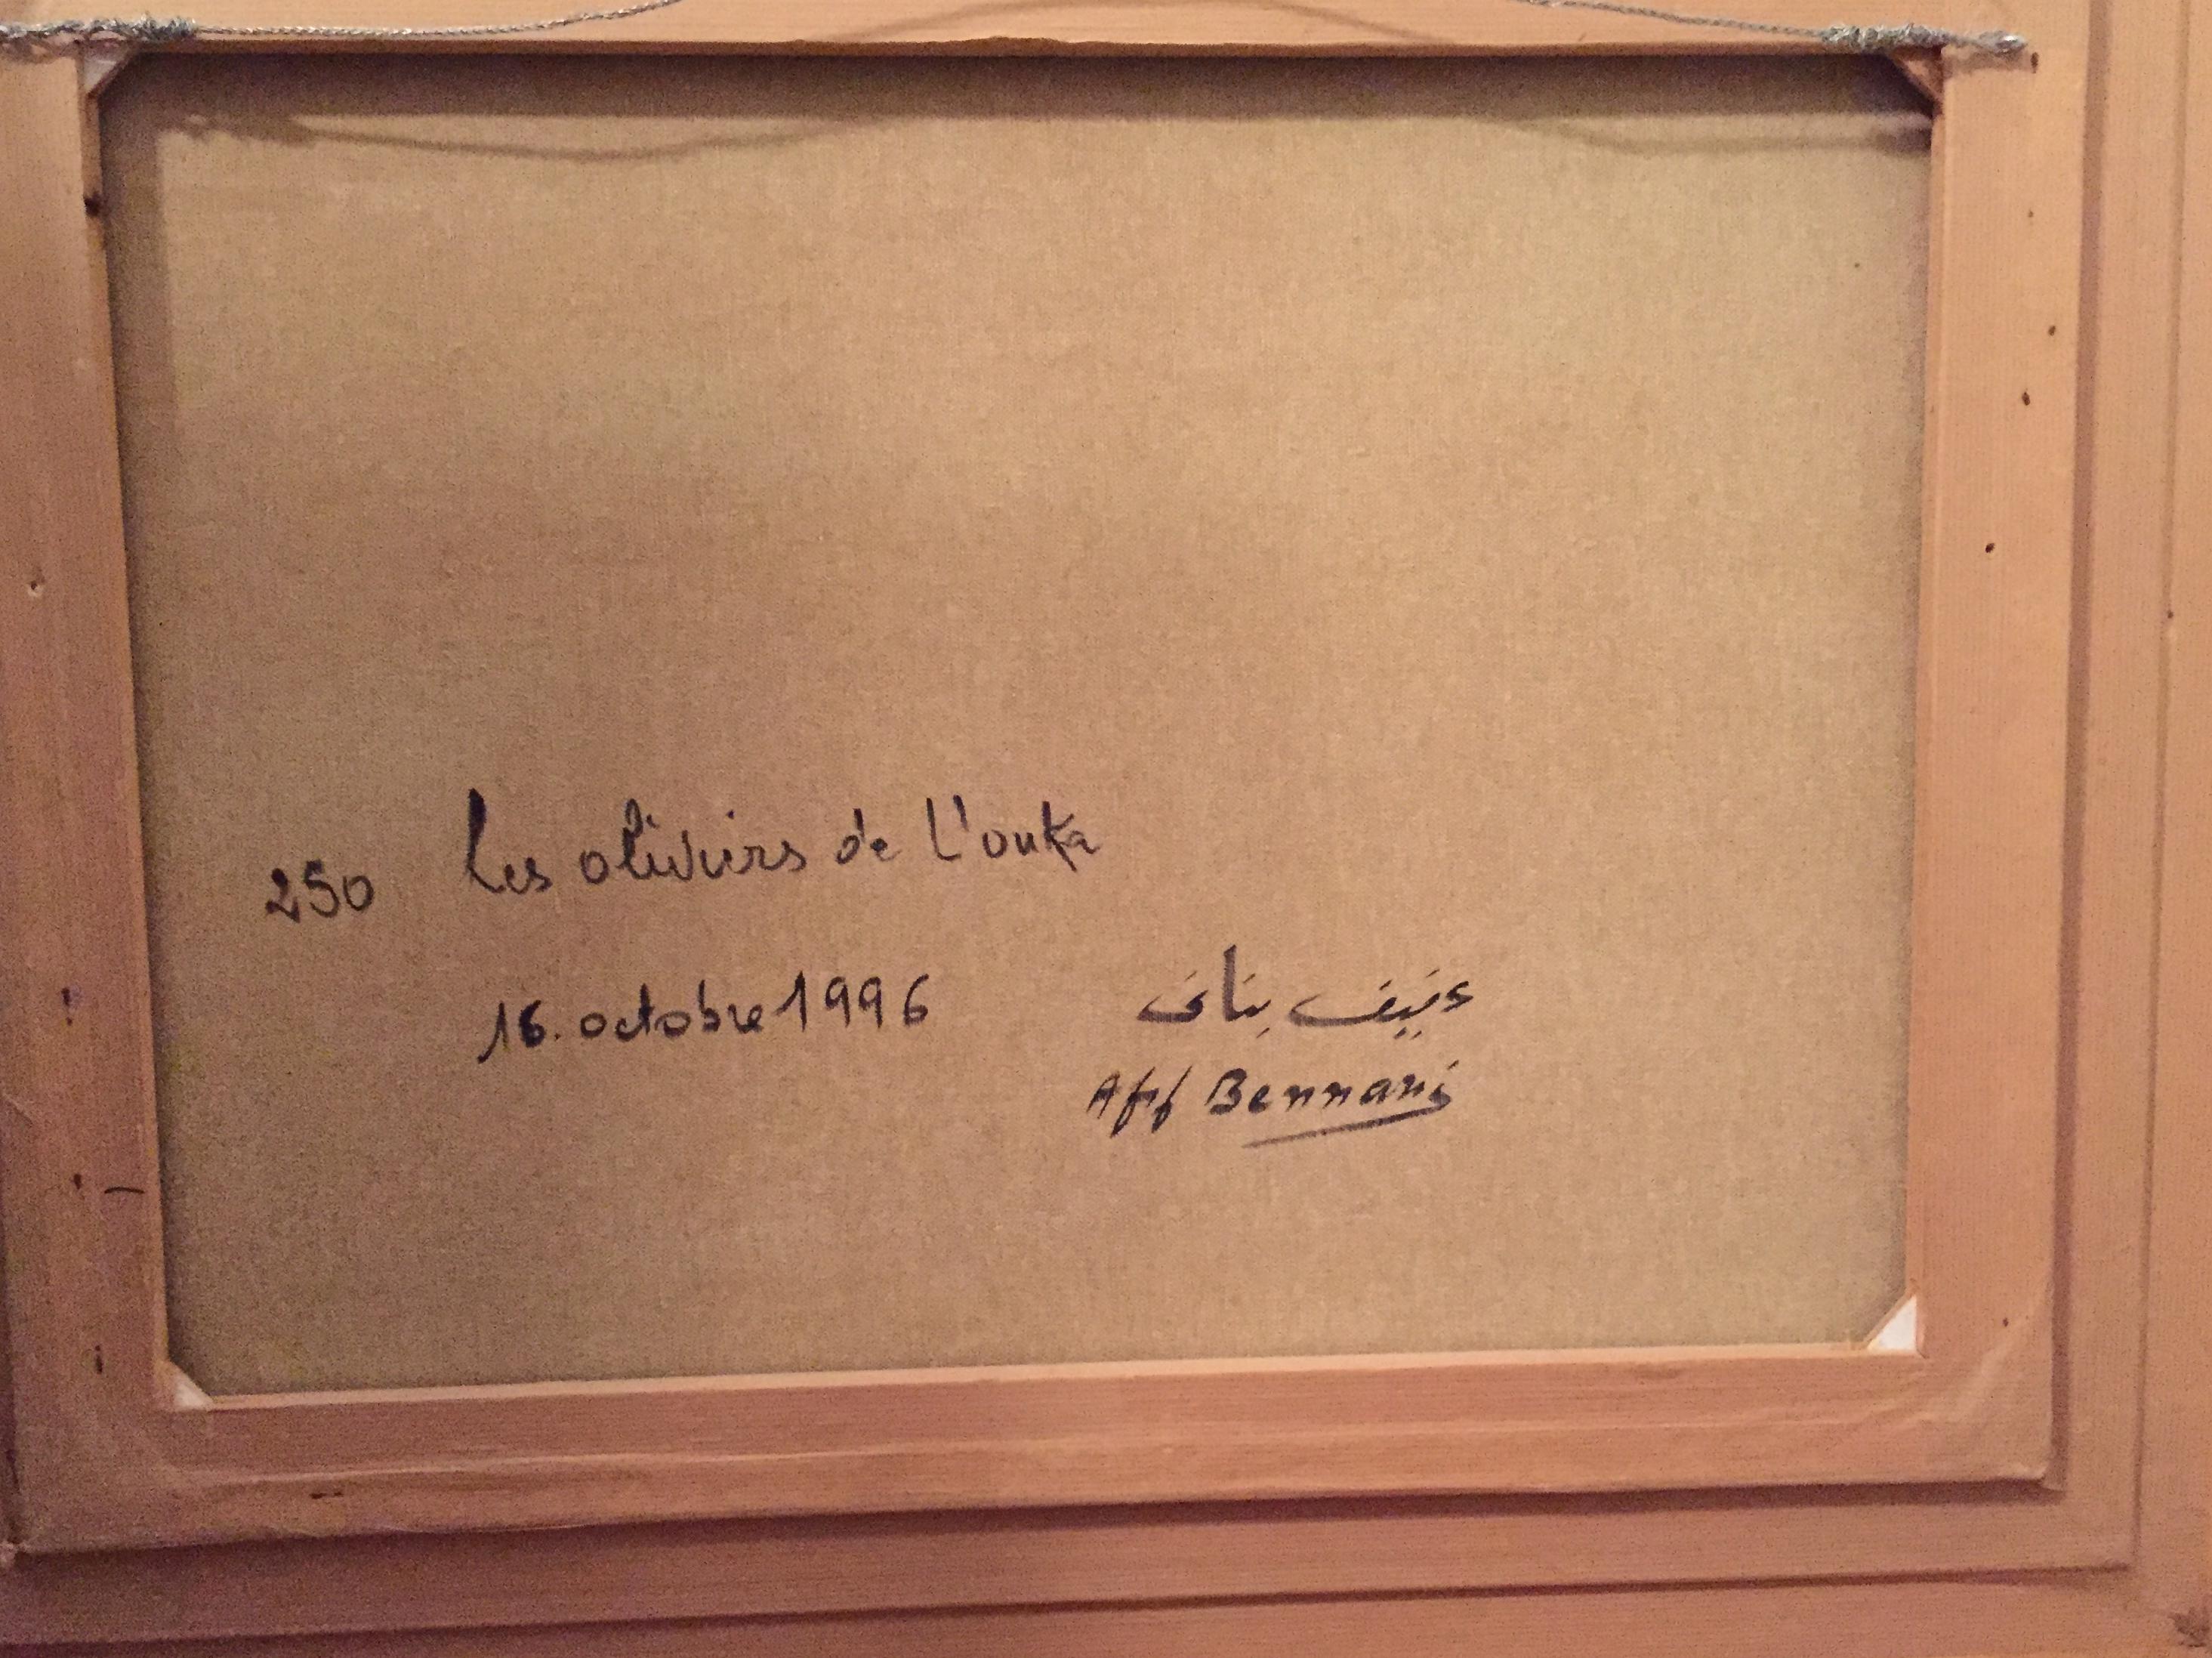 250 Les oliviers de L'ouka
16. octobre 1996
عفيف بناني
Afif Bennani